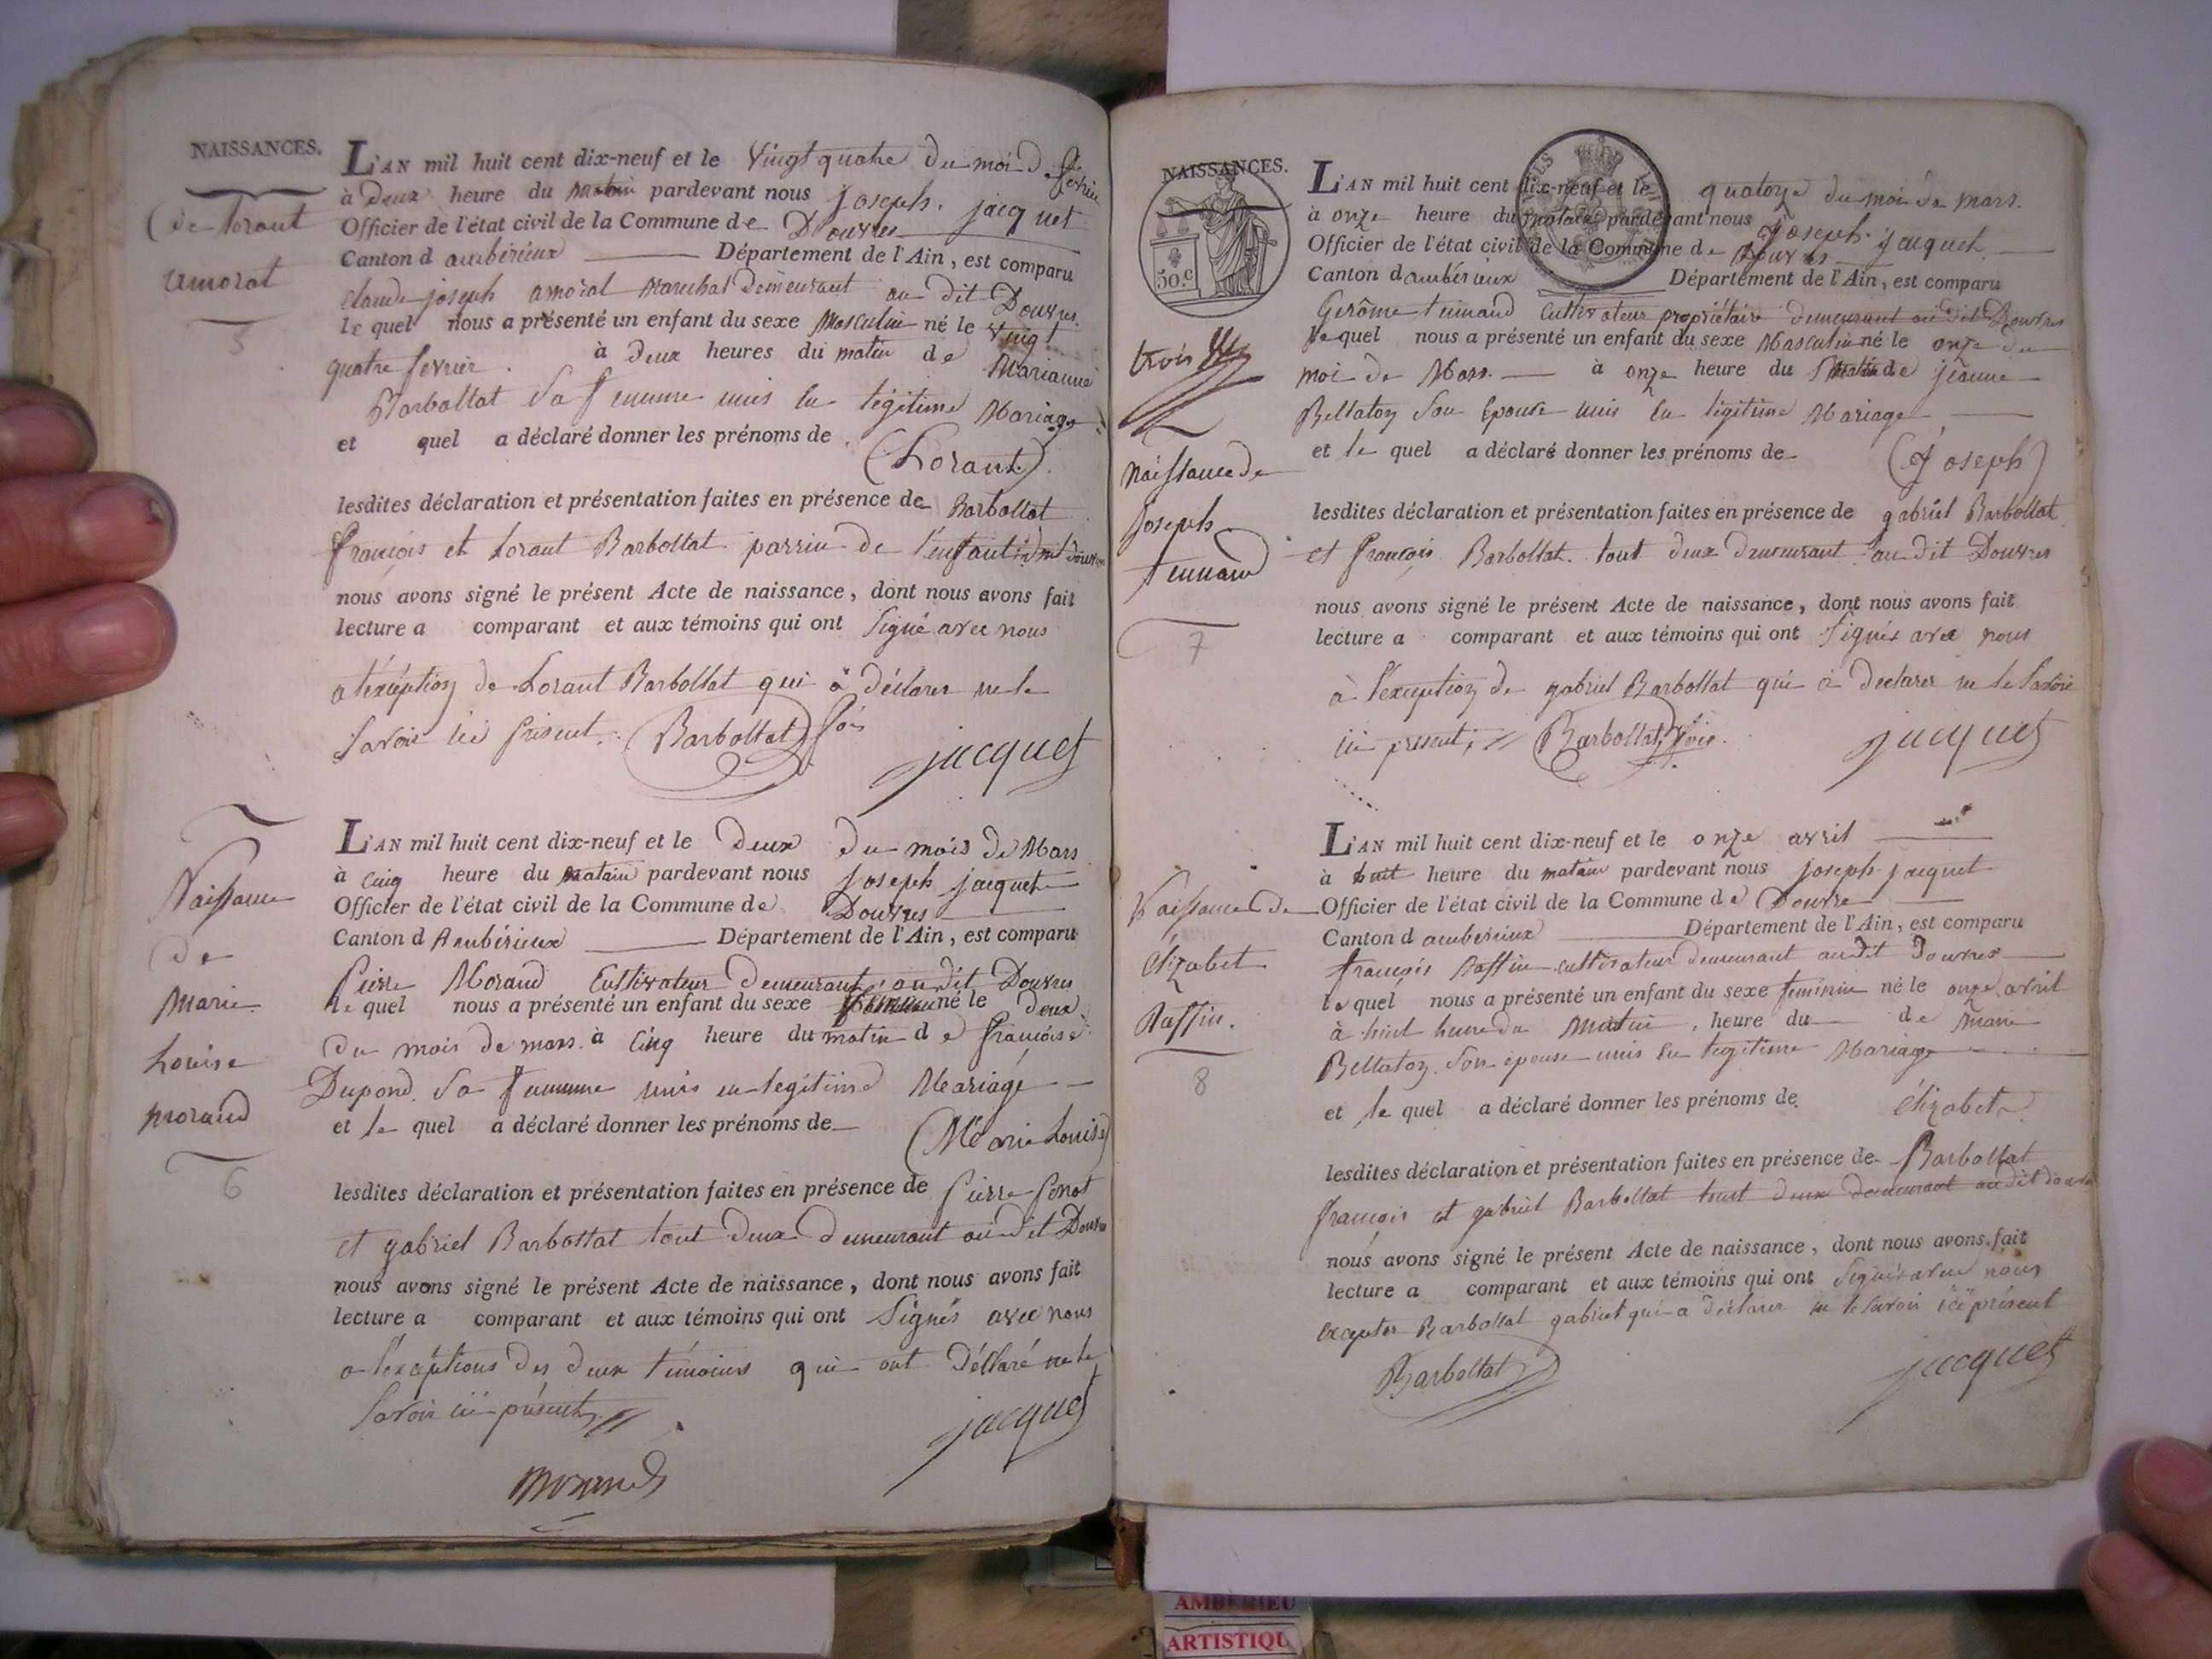 NAISSANCES.
(de Lorant
amorat
5
L'AN mil huit cent dix-neuf et le Vingt quatre du moi de fevrier
à deux heure du matin pardevant nous Joseph. jacquet
Officier de l'état civil de la Commune de Douvres
Canton d ambérieux Département de l'Ain, est comparu
Claude joseph amoral Marechal demeurant au dit Douvres.
le quel nous a présenté un enfant du sexe Masculin né le vingt
quatre fevrier. à deux heures du matin de Marianne
Barbollat Sa femme unis en légitime Mariage
et quel a déclaré donner les prénoms de (Lorant).
lesdites déclaration et présentation faites en présence de Barbollat
françois et Lorant Barbollat parrin de l'enfant
nous avons signé le présent Acte de naissance, dont nous avons fait
lecture a comparant et aux témoins qui ont Signé avec nous
a l'exéption de Lorant Barbollat qui à déclarer ne le
Savoir ici présent. Barbollat fois
jacquet
Naissance
de
Marie
Louise
morand
6
L'AN mil huit cent dix-neuf et le Deux du mois de Mars
à Cinq heure du matin pardevant nous Joseph jacquet
Officier de l'état civil de la Commune de Douvres
Canton d Ambérieux Département de l'Ain, est comparu
Pierre Morand Cultivateur demeurant au dit Douvres
le quel nous a présenté un enfant du sexe né le deux
du mois de mars. à Cinq heure du matin de françoise
Dupond. Sa femme unis en legitime Mariage
et le quel a déclaré donner les prénoms de (Marie Louise)
lesdites déclaration et présentation faites en présence de Pierre
et gabriel Barbottat tout deux demeurant au dit Douvres
nous avons signé le présent Acte de naissance, dont nous avons fait
lecture a comparant et aux témoins qui ont Signés avec nous
a l'exéptions des deux témoins qui ont Déclaré ne le
Savoir ici présent.
jacquet
morand
NAISSANCES.
50.c
trois
naissance de
Joseph
7
L'AN mil huit cent dix-neuf et le quatorze du moi de mars.
à onze heure du matin pardevant nous Joseph jacquet.
Officier de l'état civil de la Commune de Douvres
Canton d ambérieux Département de l'Ain, est comparu
Gerôme Cultivateur propriétaire demeurant au dit Douvres
lequel nous a présenté un enfant du sexe Masculin né le onze du
moi de Mars. à onze heure du matin de jeanne
Bellaton Son Epouse unis en légitime Mariage
et le quel a déclaré donner les prénoms de (Joseph)
lesdites déclaration et présentation faites en présence de gabriel Barbollat
et françois Barbollat. tout deux demeurant au dit Douvres
nous avons signé le présent Acte de naissance, dont nous avons fait
lecture a comparant et aux témoins qui ont Signés avec nous
à l'exeption de gabriel Barbollat qui à declarer ne le Savoir
ici présent, Barbollat fois.
jacquet
Naissance de
élizabet
Raffin.
8
L'AN mil huit cent dix-neuf et le onze avril
à huit heure du matin pardevant nous joseph jacquet
Officier de l'état civil de la Commune de Douvre
Canton d ambérieux Département de l'Ain, est comparu
françois Raffin cultivateur demeurant au dit Douvres
le quel nous a présenté un enfant du sexe feminin né le onze avril
à huit heure du Matin, heure du de Marie
Bellaton Son épouse unis en legitime Mariage
et le quel a déclaré donner les prénoms de élizabet
lesdites déclaration et présentation faites en présence de Barbollat
françois et gabriel Barbollat tout deux demeurant au dit
nous avons signé le présent Acte de naissance, dont nous avons fait
lecture a comparant et aux témoins qui ont Signés avec nous
excepter Barbollat gabriel qui a déclarer ne le savoir ici présent
Barbollat
jacquet
AMBERIEU
ARTISTIQU